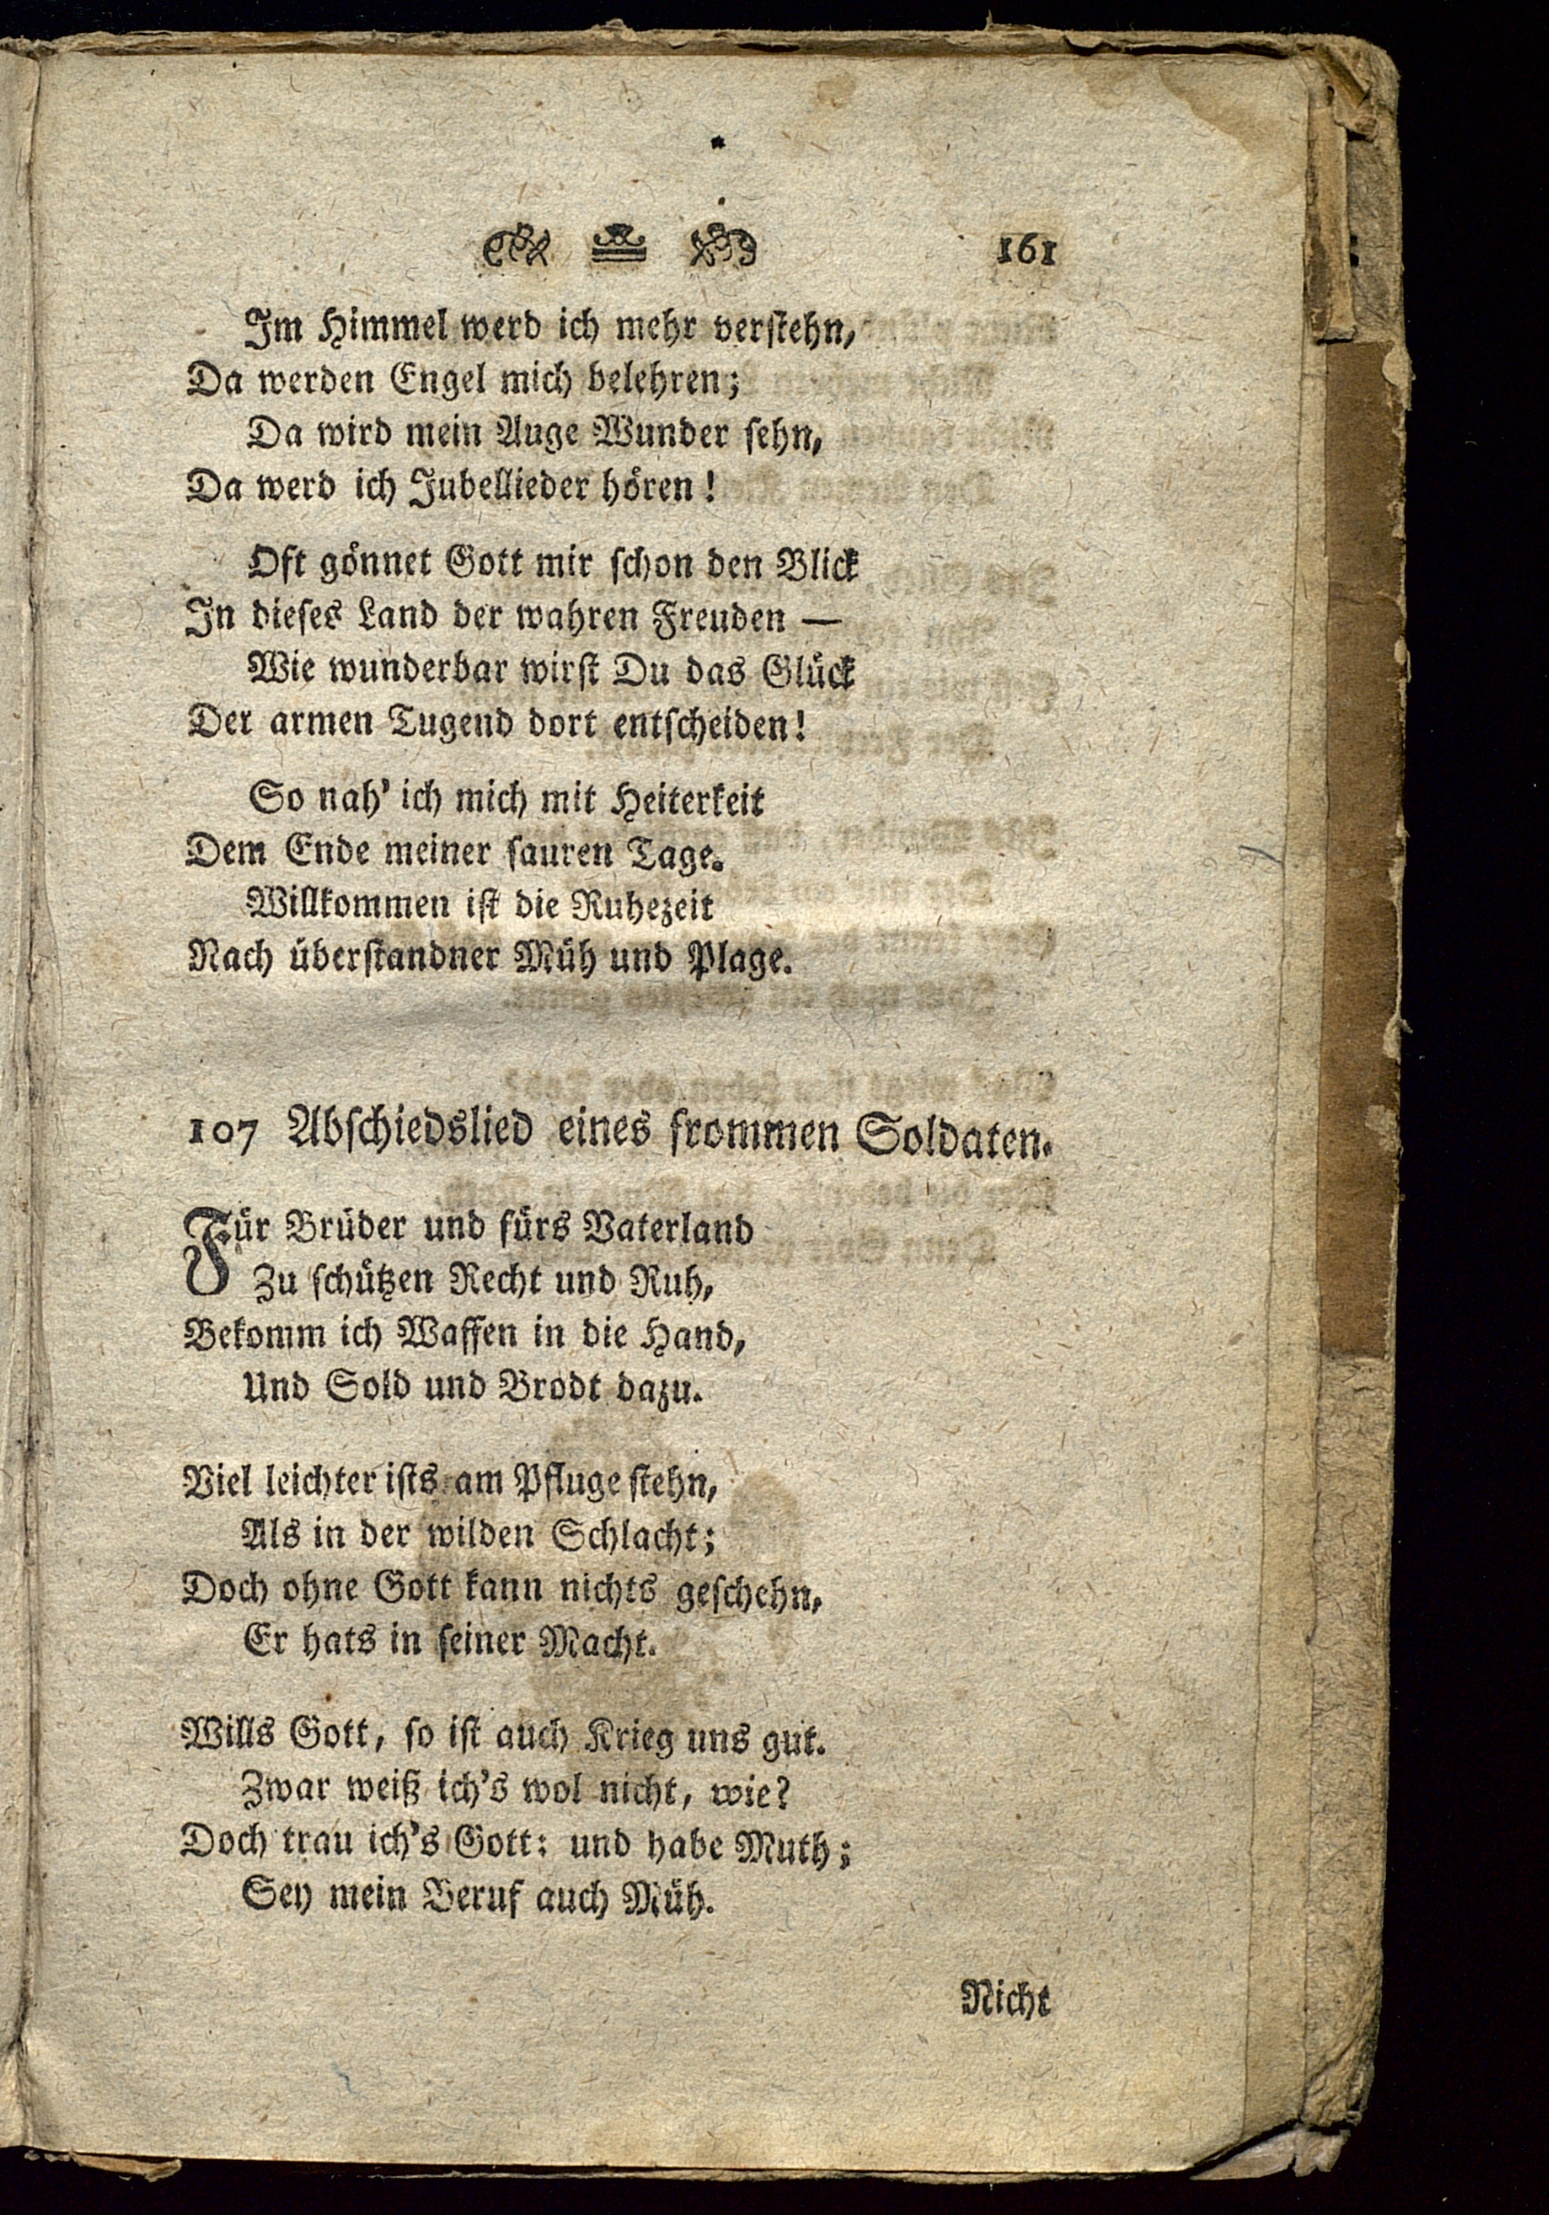 161
Im Himmel werd ich mehr verstehn,
Da werden Engel mich belehren;
Da wird mein Auge Wunder sehn,
Da werd ich Jubellieder hören!
Oft gönnet Gott mir schon den Blick
In dieses Land der wahren Freuden —
Wie wunderbar wirst Du das Glück
Der armen Tugend dort entscheiden!
So nah' ich mich mit Heiterkeit
Dem Ende meiner sauren Tage.
Willkommen ist die Ruhezeit
Nach überstandner Müh und Plage.
107 Abschiedslied eines frommen Soldaten.
Für Brüder und fürs Vaterland
Zu schützen Recht und Ruh,
Bekomm ich Waffen in die Hand,
Und Sold und Brodt dazu.
Viel leichter ists am Pfluge stehn,
Als in der wilden Schlacht;
Doch ohne Gott kann nichts geschehn,
Er hats in seiner Macht.
Wills Gott, so ist auch Krieg uns gut.
Zwar weiß ich's wol nicht, wie?
Doch trau ich's Gott: und habe Muth;
Sey mein Beruf auch Müh.
Nicht